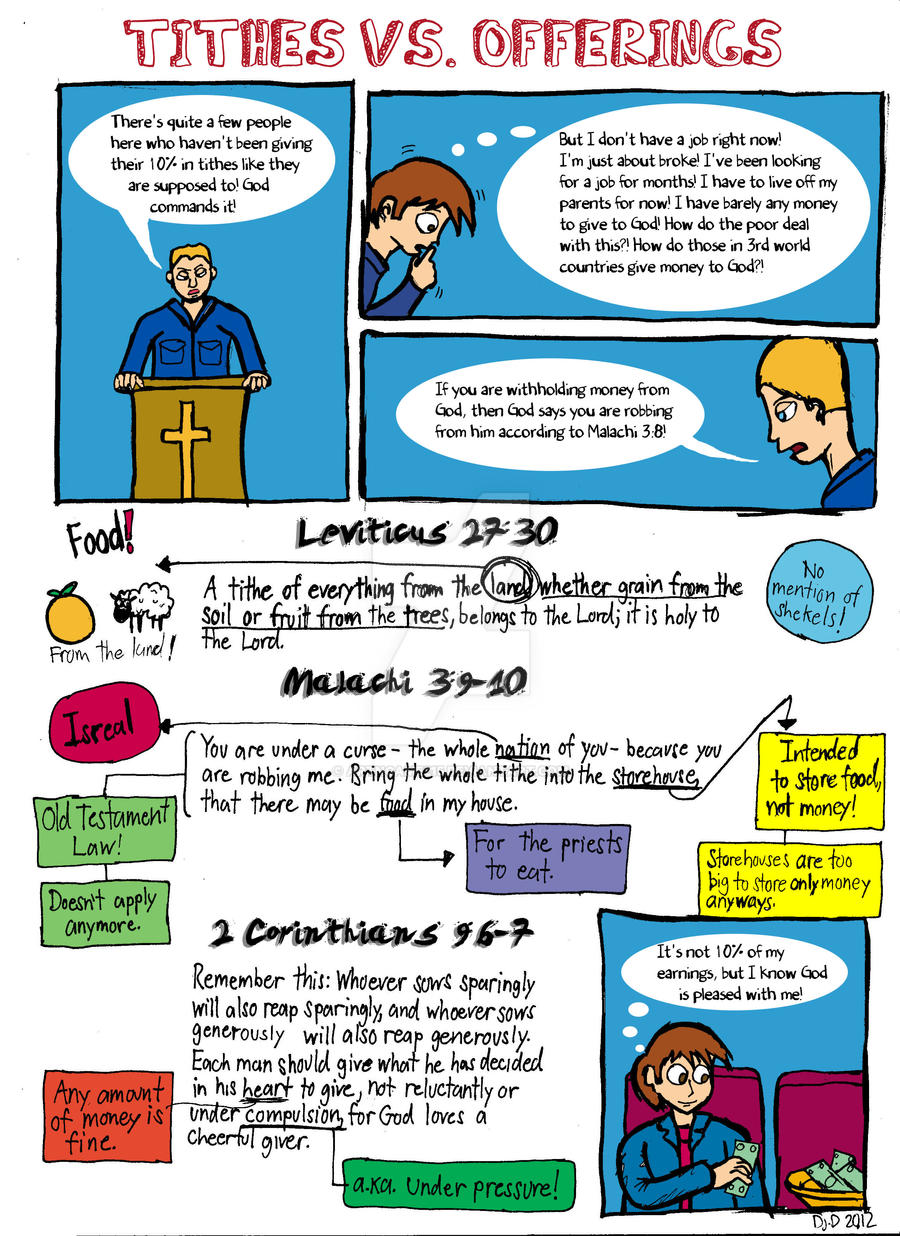 TITHES VS. OFFERINGS
There's quite a few people
here who haven't been giving
their 10% in tithes like they
are supposed to! God
commands it!
But I don't have a job right now!
I'm just about broke! I've been looking
for a job for months! I have to live off my
parents for now! I have barely any money
to give to God! How do the poor deal
with this?! How do those in 3rd world
countries give money to God?!
If you are withholding money from
God, then God says you are robbing
from him according to Malachi 3:8!
Food!
From the land!
Leviticus 27:30
A tithe of everything from the land, whether grain from the
soil or fruit from the trees, belongs to the Lord; it is holy to
the Lord.
No
mention of
shekels!
Malachi 3:9-10
Isreal
You are under a curse - the whole nation of you - because you
are robbing me. Bring the whole tithe into the storehouse,
that there may be food in my house.
Old Testament
Law!
Doesn't apply
anymore.
For the priests
to eat.
Intended
to store food,
not money!
Storehouses are too
big to store only money
anyways.
2 Corinthians 9:6-7
Remember this: Whoever sows sparingly
will also reap sparingly, and whoever sows
generously will also reap generously.
Each man should give what he has decided
in his heart to give, not reluctantly or
under compulsion, for God loves a
cheerful giver.
Any amount
of money is
fine.
a.k.a. under pressure!
It's not 10% of my
earnings, but I know God
is pleased with me!
Dj.D 2012